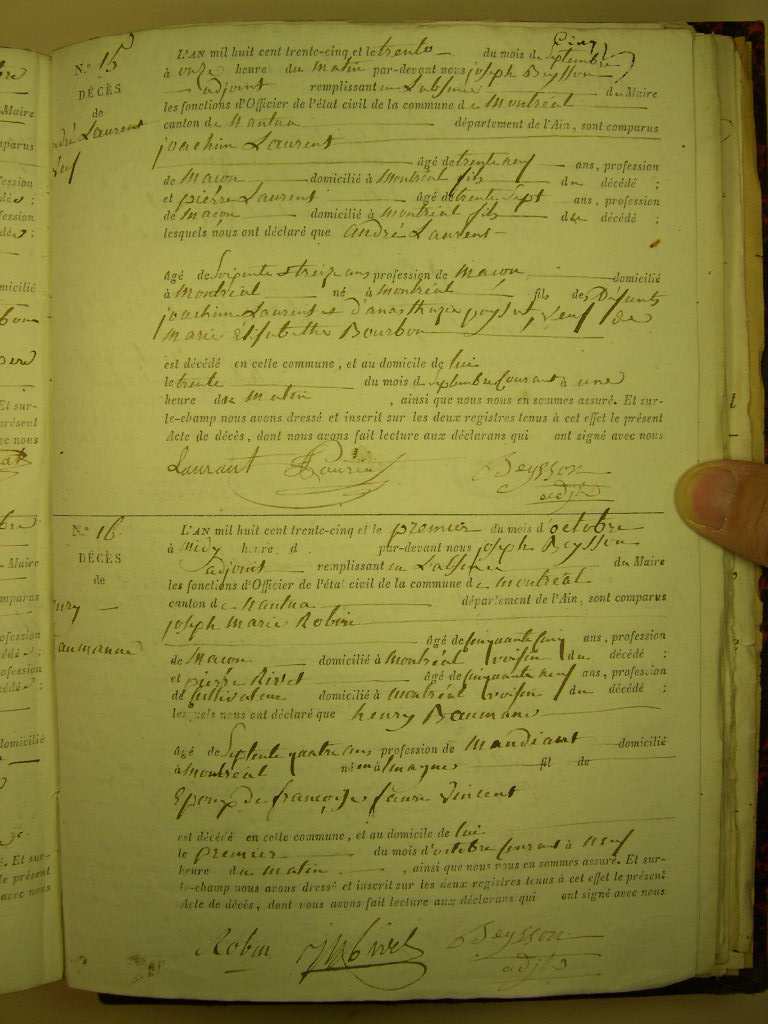 N.o 15
DÉCÈS
de
Laurent
L'AN mil huit cent trente-cinq et le trente du mois de septembre
à onze heure du matin par-devant nous joseph Beysson
adjoint remplissant en L'absence du Maire
les fonctions d'Officier de l'état civil de la commune de Montréal
canton de Nantua département de l'Ain, sont comparus
joachim Laurent
âgé de trente neuf ans, profession
de Macon domicilié à Montréal fils du décédé ;
et pierre Laurent âgé de trente Sept ans, profession
de Macon domicilié à montréal fils du décédé ;
lesquels nous ont déclaré que andré Laurent
âgé de Soixente et treize ans profession de Macon domicilié
à Montréal né à montréal fils des Defunts
joachim Laurent et d'anasthazie veuf de
marie Elisabethe Bourbon
est décédé en cette commune, et au domicile de lui
le trente du mois de septembre Courant à une
heure du matin , ainsi que nous nous en sommes assuré. Et sur-
le-champ nous avons dressé et inscrit sur les deux registres tenus à cet effet le présent
Acte de décès, dont nous avons fait lecture aux déclarans qui ont signé avec nous
Laurant Laurent Beysson
adjt
N.o 16
DÉCÈS
de
L'AN mil huit cent trente-cinq et le premier du mois d octobre
à midy heure d par-devant nous joseph Beysson
adjoint remplissant en L'absence du Maire
les fonctions d'Officier de l'état civil de la commune de montréal
canton de Nantua département de l'Ain, sont comparus
joseph marie Robin
âgé de cinquante cinq ans, profession
de Macon domicilié à montréal voisin du décédé ;
et pierre Rivet âgé de cinquante neuf ans, profession
de Cultivateur domicilié à montréal voisin du décédé ;
lesquels nous ont déclaré que henry Baumann
âgé de Septente quatre ans profession de Mandiant domicilié
à montréal né fil de
Epoux de francoise faure Vincent
est décédé en cette commune, et au domicile de lui
le premier du mois d'octobre Courant à neuf
heure du matin , ainsi que nous nous en sommes assuré. Et sur-
le-champ nous avons dressé et inscrit sur les deux registres tenus à cet effet le présent
Acte de décès, dont nous avons fait lecture aux déclarans qui ont signé avec nous
Robin Rivet Beysson
adjt